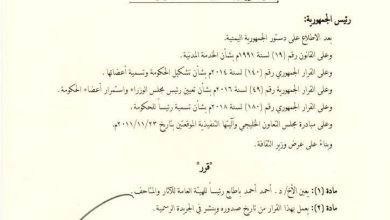 رئيس الجمهورية:
بعد الاطلاع على دستور الجمهورية اليمنية.
وعلى القانون رقم (١٩) لسنة ١٩٩١م بشأن الخدمة المدنية.
وعلى القرار الجمهوري رقم (١٤٠) لسنة ٢٠١٤م بشأن تشكيل الحكومة وتسمية أعضائها.
وعلى القرار الجمهورية رقم (٤٩) لسنة ٢٠١٦م بشأن تعيين رئيس مجلس الوزراء واستمرار أعضاء الحكومة.
وعلى القرار الجمهوري رقم (١٨٠) لسنة ٢٠١٨م بشأن تسمية رئيساً للحكومة.
وعلى مبادرة مجلس التعاون الخليجي وآليتها التنفيذية الموقعتين بتاريخ ٢٠١١/١١/٢٣م.
وبناءً على عرض وزير الثقافة.
"قرر"
مادة (١): يعين الأخ/ د. أحمد أحمد باطايع رئيساً للهيئة العامة للآثار والمتاحف.
مادة (٢): يعمل بهذا القرار من تاريخ صدوره وينشر في الجريدة الرسمية.